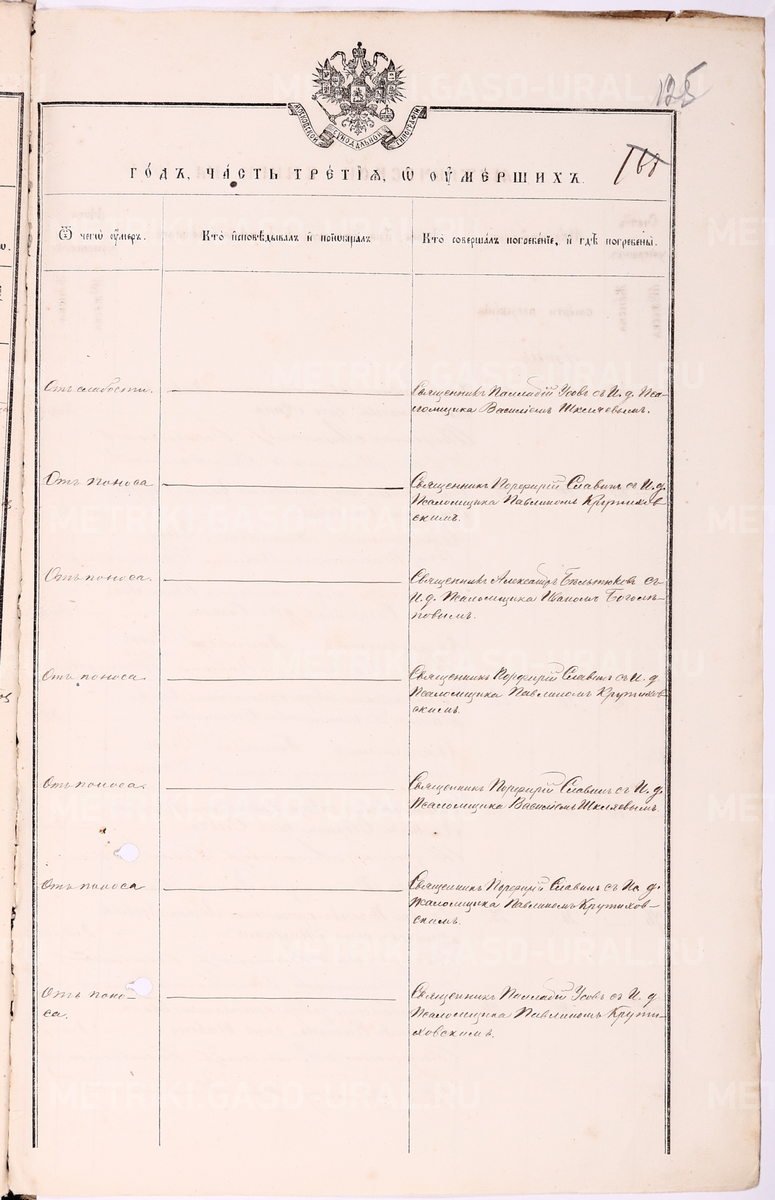 125
МОСКОВСКОЙ СѴНОДАЛЬНОЙ ТИПОГРАФІИ
160
ГО́ДЪ, ЧА́СТЬ ТРЕ́ТІѦ, Ѿ ОУ҆МЕ́РШИХЪ.
Ѿ чегѡ̀ ᲂу҆́меръ.
Кто̀ и҆сповѣ́дывалъ и҆ прїѡбща́лъ
Кто̀ соверша́лъ погребе́нїе, и҆ гдѣ̀ погребены̀.
Отъ слабости.
Священникъ Палладій Усовъ съ И. д. Пса-
ломщика Василіемъ Шкляевымъ.
Отъ поноса
Священникъ Порфирій Славинъ съ И. д.
Псаломщика Павлиномъ Крутихов
скимъ.
Отъ поноса.
Священникъ Александръ Бѣльтюковъ съ
И. д. Псаломщика Иваномъ Боголѣ-
повымъ.
Отъ поноса
Священникъ Порфирій Славинъ съ И. д
Псаломщика Павлиномъ Крутихов
скимъ.
Отъ поноса.
Священникъ Порфирій Славинъ съ И. д.
Псаломщика Василіемъ Шкляевымъ
Отъ поноса
Священникъ Порфирій Славинъ съ И. д.
Псаломщика Павлиномъ Крутихов-
скимъ.
Отъ поно-
са.
Священникъ Палладій Усовъ съ И. д
Псаломщика Павлиномъ Крути-
ховскимъ.
METRIKI.GASO-URAL.RU